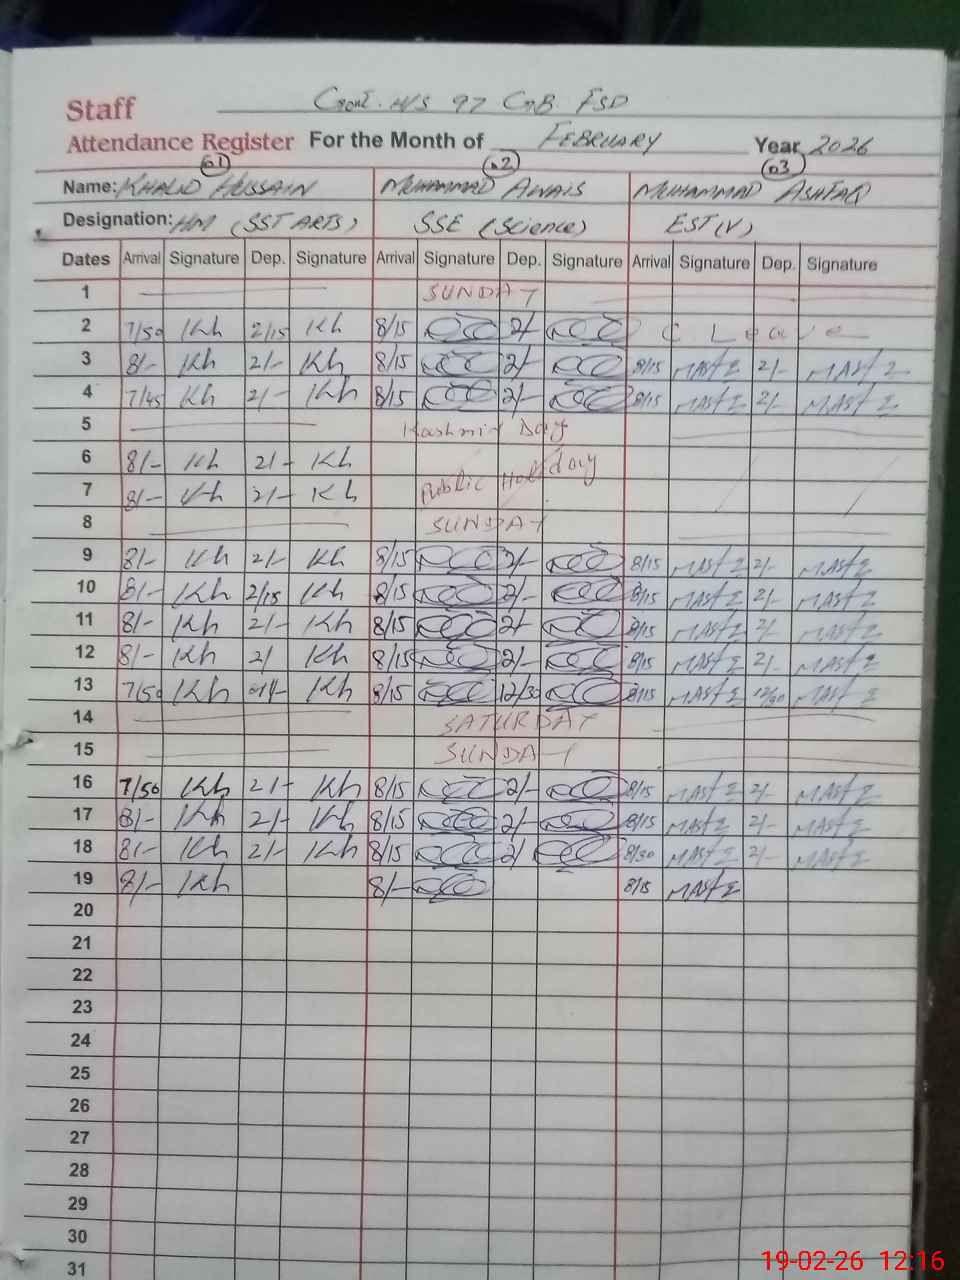 Staff
Govt. H/S 97 GB FSD
Attendance Register For the Month of FEBRUARY Year 2026
01 02 03
Name: KHALID HUSSAIN MUHAMMAD AWAIS MUHAMMAD ASHFAQ
Designation: HM (SST ARTS) SSE (Science) EST(V)
Dates Arrival Signature Dep. Signature Arrival Signature Dep. Signature Arrival Signature Dep. Signature
1 SUNDAY
2 7/50 Kh 2/15 Kh 8/15 2/- C Leave
3 8/- Kh 2/- Kh 8/15 2/- 8/15 2/-
4 7/45 Kh 2/- Kh 8/15 2/- 8/15 2/-
5 Kashmir Day
6 8/- Kh 2/- Kh
7 8/- Kh 2/- Kh Public Holiday
8 SUNDAY
9 8/- Kh 2/- Kh 8/15 2/- 8/15 2/-
10 8/- Kh 2/15 Kh 8/15 2/- 8/15 2/-
11 8/- Kh 2/- Kh 8/15 2/- 8/15 2/-
12 8/- Kh 2/ Kh 8/15 2/- 8/15 2/-
13 7/50 Kh Kh 8/15 12/30 8/15 12/30
14 SATURDAY
15 SUNDAY
16 7/50 Kh 2/- Kh 8/15 2/- 8/15 2/-
17 8/- Kh 2/- Kh 8/15 2/- 8/15 2/-
18 8/- Kh 2/- Kh 8/15 2/ 8/30 2/-
19 8/- Kh 8/- 8/15
20
21
22
23
24
25
26
27
28
29
30
31
19-02-26 12:16